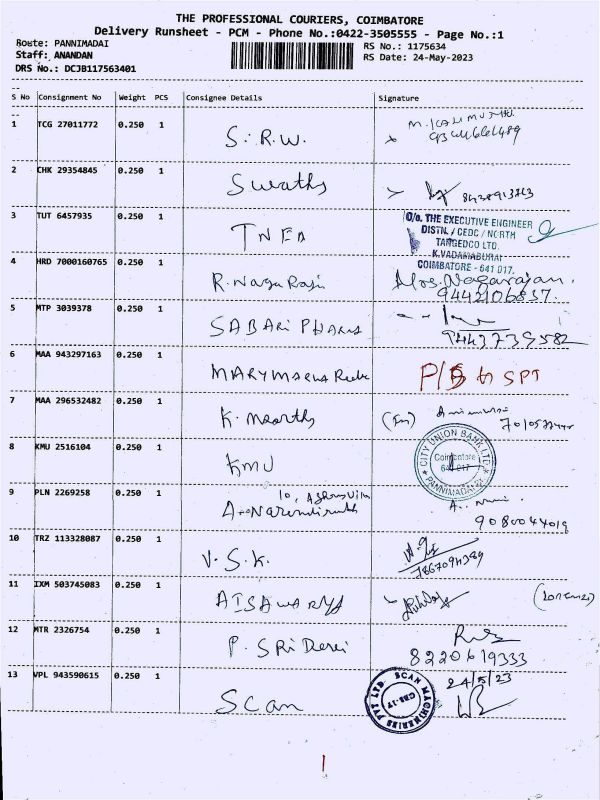 THE PROFESSIONAL COURIERS, COIMBATORE
Delivery Runsheet - PCM - Phone No.:0422-3505555 - Page No.:1
Route: PANNIMADAI
RS No.: 1175634
Staff: ANANDAN
RS Date: 24-May-2023
DRS No.: DCJB117563401
S No Consignment No Weight PCS Consignee Details Signature
1 TCG 27011772 0.250 1 S.R.W.
2 CHK 29354845 0.250 1 Swathy
3 TUT 6457935 0.250 1 TNEB
O/o. THE EXECUTIVE ENGINEER
DISTN. / CEDC / NORTH
TANGEDCO LTD.
K.VADAMADURAI
COIMBATORE - 641 017.
4 HRD 7000160765 0.250 1 R. Naga Rajn Mrs. Nagarajan.
9442106837.
5 MTP 3039378 0.250 1 SABARi PHARMA
9443739582
6 MAA 943297163 0.250 1 MARY P/B to SPT
7 MAA 296532482 0.250 1 K. Moorthy
8 KMU 2516104 0.250 1 KMU
CITY UNION BANK LTD
Coimbatore
641 017
PANNIMADAI
9 PLN 2269258 0.250 1 10,
9080044019
10 TRZ 113328087 0.250 1 V.S.K.
11 IXM 503745083 0.250 1 AISAWARYA
12 MTR 2326754 0.250 1 P. SRi Devi
8220619333
13 VPL 943590615 0.250 1 Scan 24/5/23
SCAN MACHINERIES PVT LTD
CBE-17
1